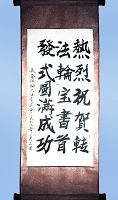 熱烈祝賀轉
法輪宝書首
發式圓滿成功